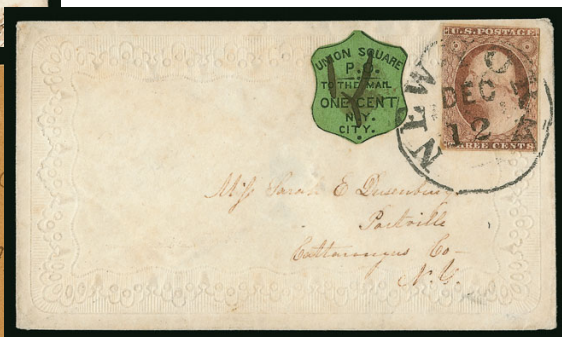 UNION SQUARE
P.O.
TO THE MAIL
ONE CENT
N.Y.
CITY.
U.S. POSTAGE
THREE CENTS
NEW YORK
DEC
12
Miss Sarah E Dusenbury
Portville
Cattaraugus Co-
N.Y.